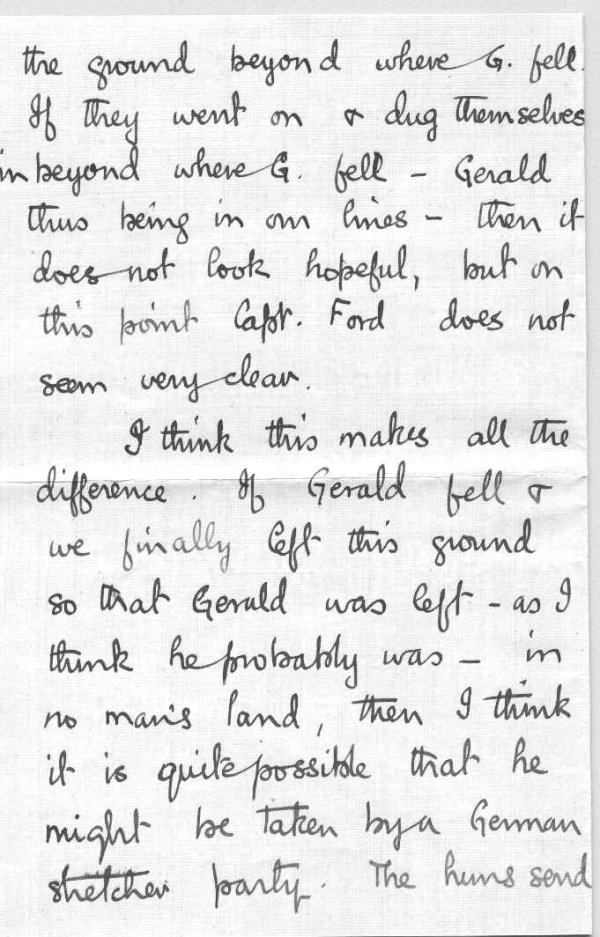 the ground beyond where G. fell.
If they went on & dug themselves
in beyond where G. fell - Gerald
thus being in our lines - then it
does not look hopeful, but on
this point Capt. Ford does not
seem very clear.
I think this makes all the
difference. If Gerald fell &
we finally left this ground
so that Gerald was left - as I
think he probably was - in
no man's land, then I think
it is quite possible that he
might be taken by a German
stretcher party. The huns send